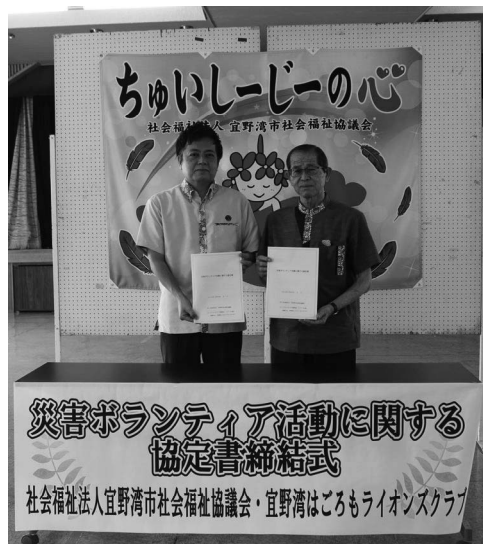 ちゅいしーじーの心
社会福祉法人 宜野湾市社会福祉協議会
災害ボランティア活動に関する
協定書締結式
社会福祉法人宜野湾市社会福祉協議会・宜野湾はごろもライオンズクラブ